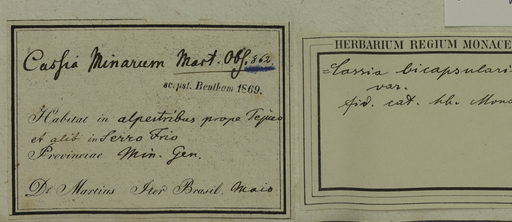 Cassia Minarum Mart. Obs. 862
scrpst. Bentham 1869.
Habitat in alpestribus prope Tejuco
et alib in Serro Frio
Provinciae Min. Gen.
Dr Martius Iter Brasil. Maio
HERBARIUM REGIUM MONACE
=Cassia bicapsularis
var.
fid. cat. hb. Mona